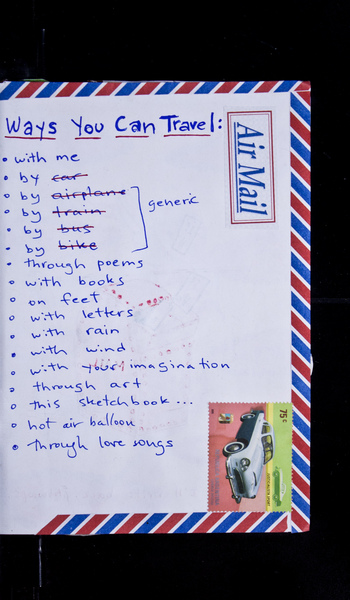 Ways You Can Travel:
Air Mail
• with me
• by car
• by airplane
• by train
• by bus
• by bike
generic
• through poems
• with books
• on feet
• with letters
• with rain
• with wind
• with your imagination
• through art
• this sketchbook...
• hot air balloon
• through love songs
75¢